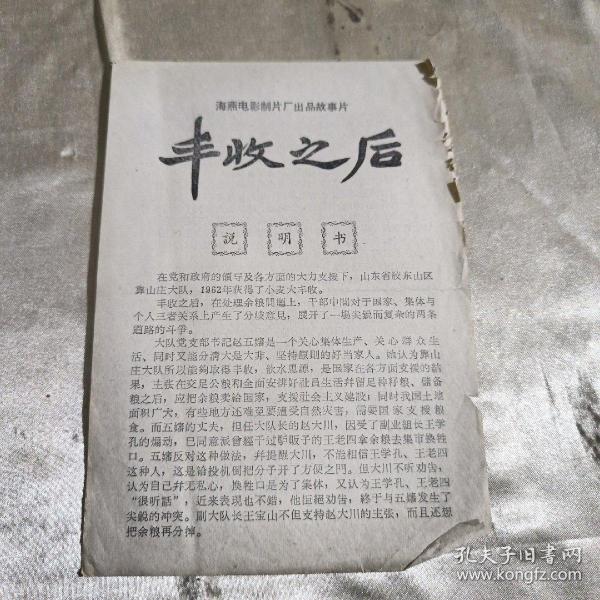 海燕电影制片厂出品故事片
丰收之后
说明书
在党和政府的领导及各方面的大力支援下，山东省胶东山区
靠山庄大队，1962年获得了小麦大丰收。
丰收之后，在处理余粮问题上，干部中间对于国家、集体与
个人三者关系上产生了分歧意见，展开了一场尖锐而复杂的两条
道路的斗争。
大队党支部书记赵五婶是一个关心集体生产、关心群众生
活、同时又能分清大是大非、坚持原则的好当家人。她认为靠山
庄大队所以能够取得丰收，饮水思源，是国家在各方面支援的结
果，主张在交足公粮和全面安排好社员生活并留足种籽粮、储备
粮之后，应把余粮卖给国家，支援社会主义建设；同时我国土地
面积广大，有些地方还难免要遭受自然灾害，需要国家支援粮
食。而五婶的丈夫，担任大队长的赵大川，因受了副业组长王学
孔的煽动，已同意派曾经干过驴贩子的王老四拿余粮去集市换牲
口。五婶反对这种做法，并提醒大川，不能相信王学孔、王老四
这种人，这是给投机倒把分子开了方便之门。但大川不听劝告，
认为自己并无私心，换牲口是为了集体，又认为王学孔、王老四
“很听话”，近来表现也不错，他拒绝劝告，终于与五婶发生了
尖锐的冲突。副大队长王宝山不但支持赵大川的主张，而且还想
把余粮再分掉。
孔夫子旧书网
www.kongfz.com